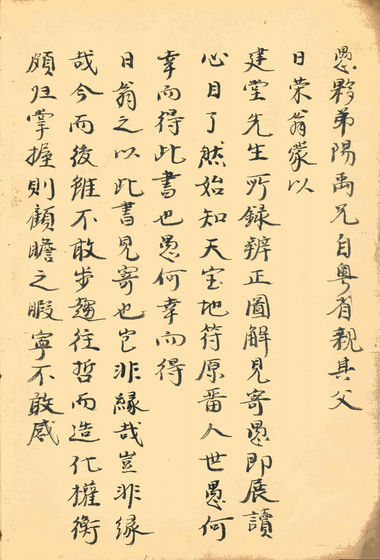 愚夥弟陽禹兄自粵省親其父
日荣翁蒙以
建堂先生所録辨正圖解見寄愚即展讀
心目了然始知天宝地符原畨人世愚何
幸而得此書也愚何幸而得
日翁之以此書見寄也岂非緣哉豈非緣
哉今而後雖不敢步趨往哲而造化權衡
頗归掌握則顧瞻之暇寧不敢感